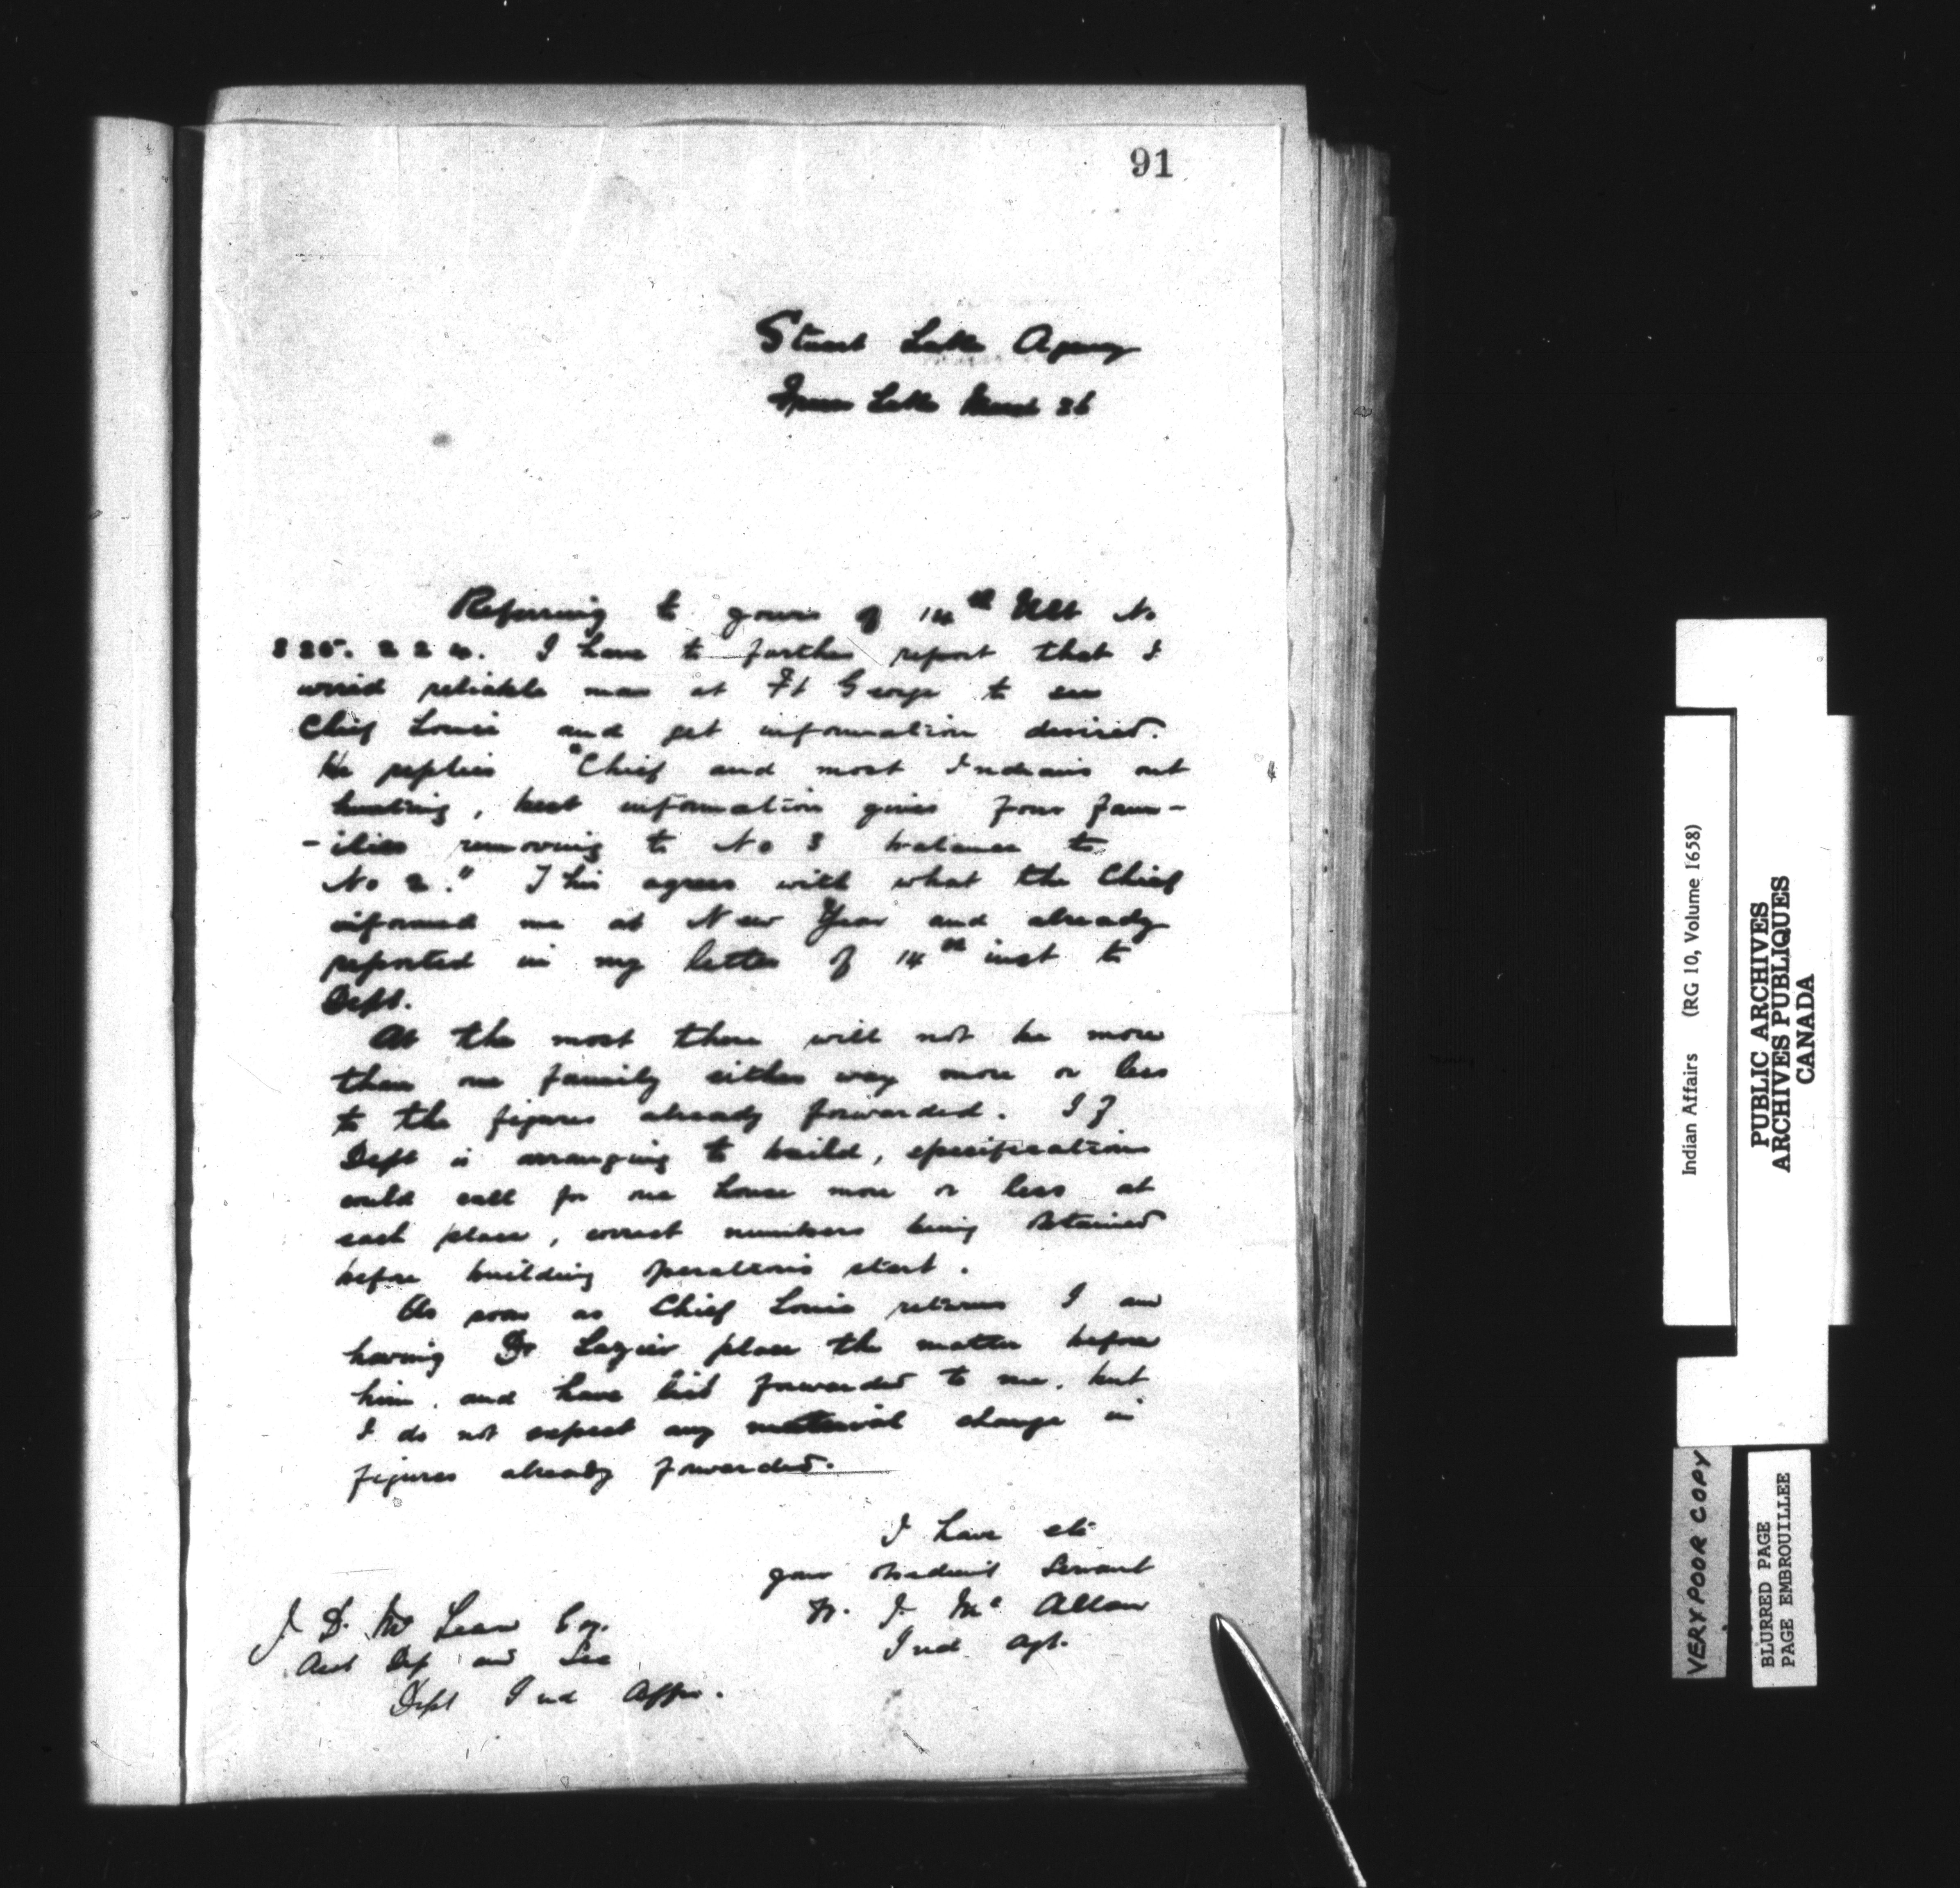 91
Stuart Lake Agency
Fraser Lake March 26
Referring to yours of 14th Ult No
325.224. I have to further report that I
wired reliable man at Ft George to see
Chief Louis and get information desired.
He replies "Chief and most Indians out
hunting, best information gives four fam-
-ilies removing to No 3 balance to
No 2." This agrees with what the Chief
informed me at New Year and already
reported in my letter of 14th inst to
Dept.
At the most there will not be more
than one family either way more or less
to the figures already forwarded. If
Dept is arranging to build, specifications
could call for one house more or less at
each place, correct numbers being obtained
before building operations start.
As soon as Chief Louis returns I am
having Dr Lazier place the matter before
him, and have list forwarded to me, but
I do not expect any material change in
figures already forwarded.
I have etc
your obedient Servant
W. J. Mc Allan
Ind Agt.
J. D. Mc Lean Esq.
Asst Dep and Sec
Dept Ind Affrs.
Indian Affairs (RG 10, Volume 1658)
PUBLIC ARCHIVES
ARCHIVES PUBLIQUES
CANADA
VERY POOR COPY
BLURRED PAGE
PAGE EMBROUILLEE